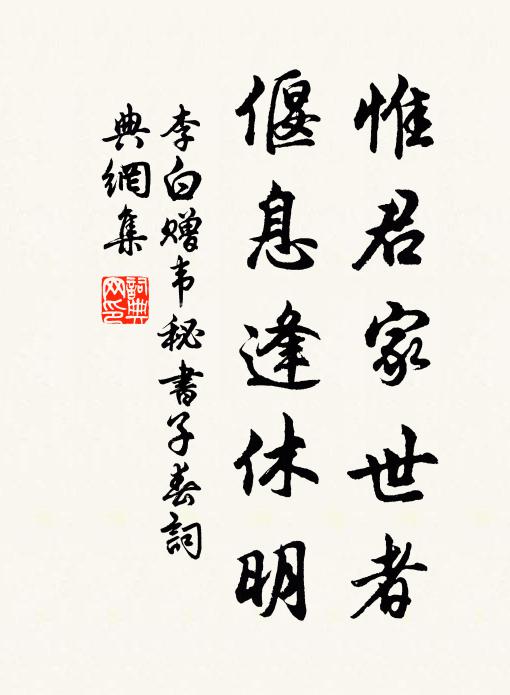 惟君家世者
偃息逢休明
李白赠韦秘書子春詞
典網集
詞典
网印